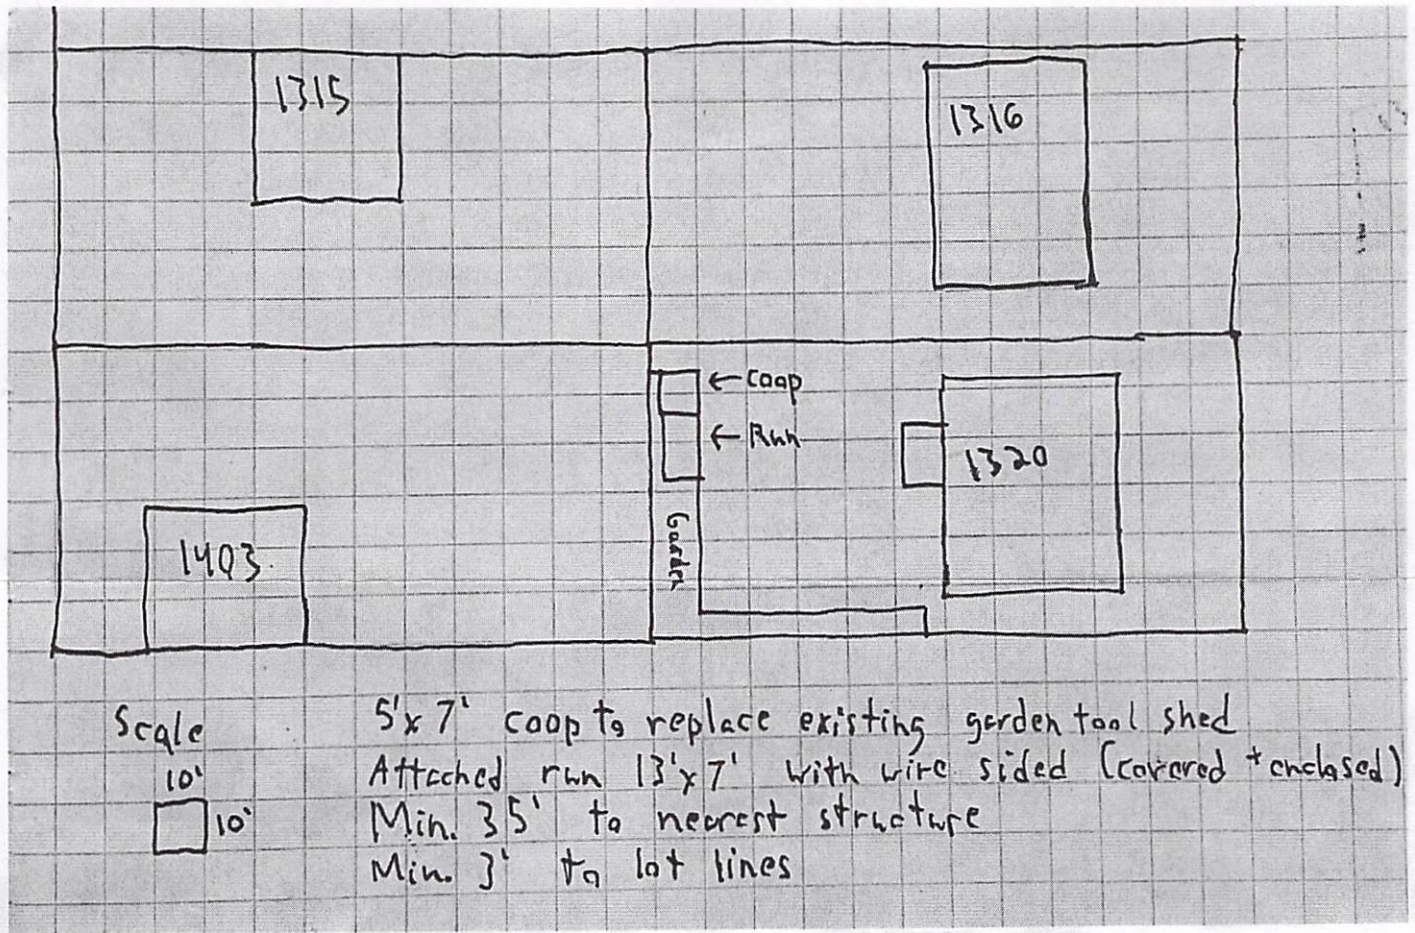 1315
1316
← Coop
← Run
1320
Garden
1403
Scale
10'
10'
5'x 7' coop to replace existing garden tool shed
Attached run 13'x 7' with wire sided (covered + enclosed)
Min. 35' to nearest structure
Min. 3' to lot lines